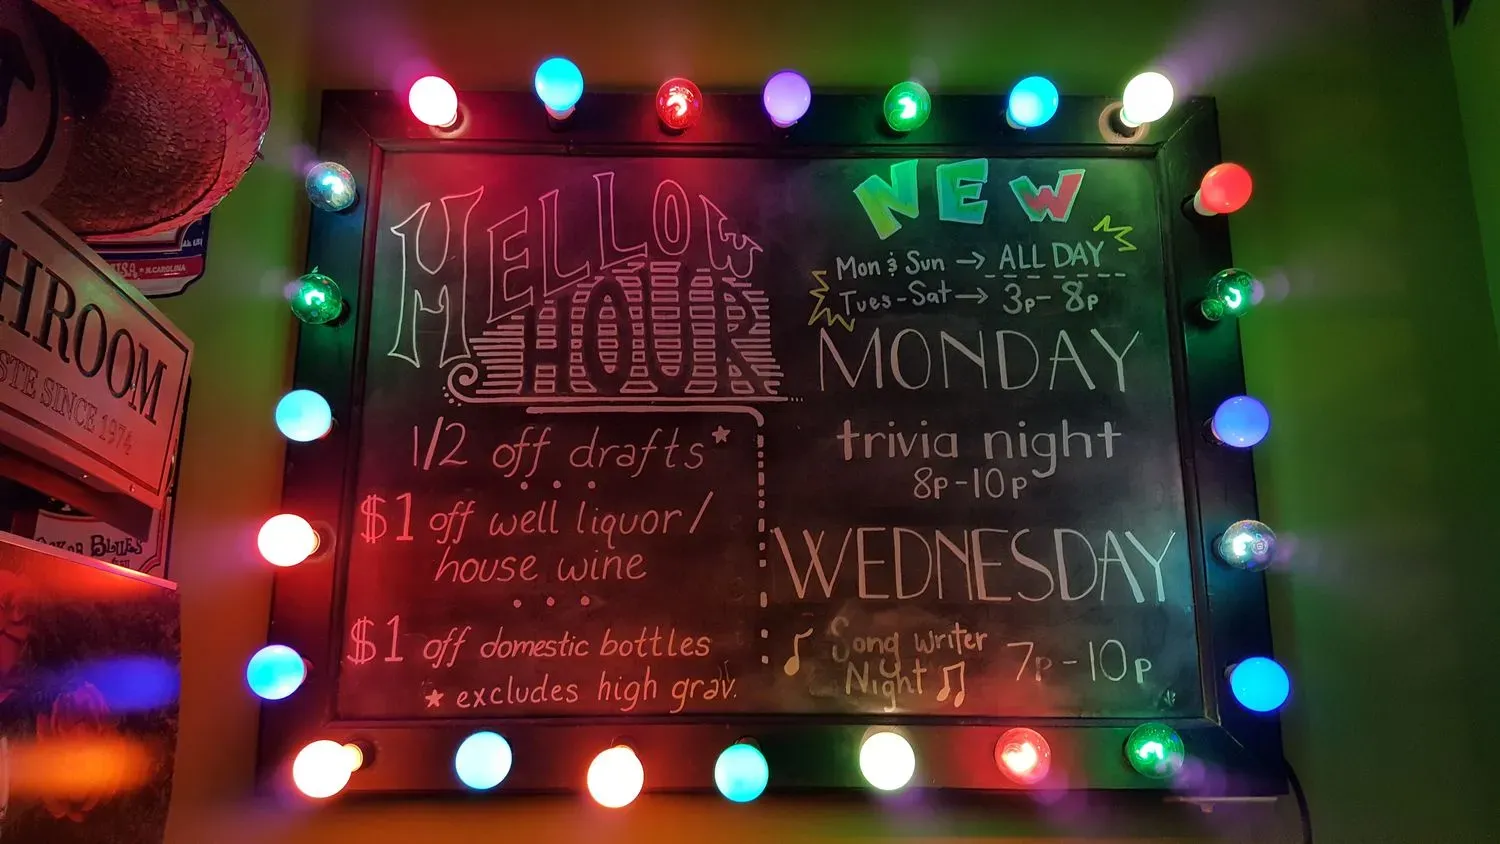 MELLOW
HOUR
1/2 off drafts*
$1 off well liquor/
house wine
$1 off domestic bottles
* excludes high grav.
NEW
Mon & Sun → ALL DAY
Tues-Sat → 3p-8p
MONDAY
trivia night
8p-10p
WEDNESDAY
Song writer
Night
7p-10p
HROOM
STE SINCE 1974
N.CAROLINA
BLUES